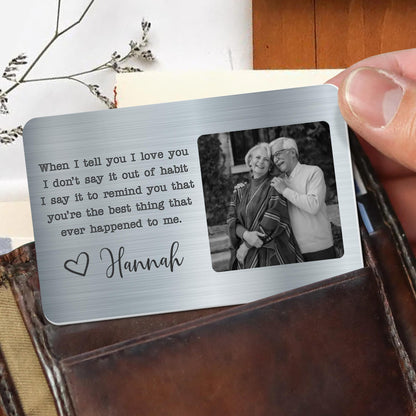 When I tell you I love you
I don't say it out of habit
I say it to remind you that
you're the best thing that
ever happened to me.
Hannah